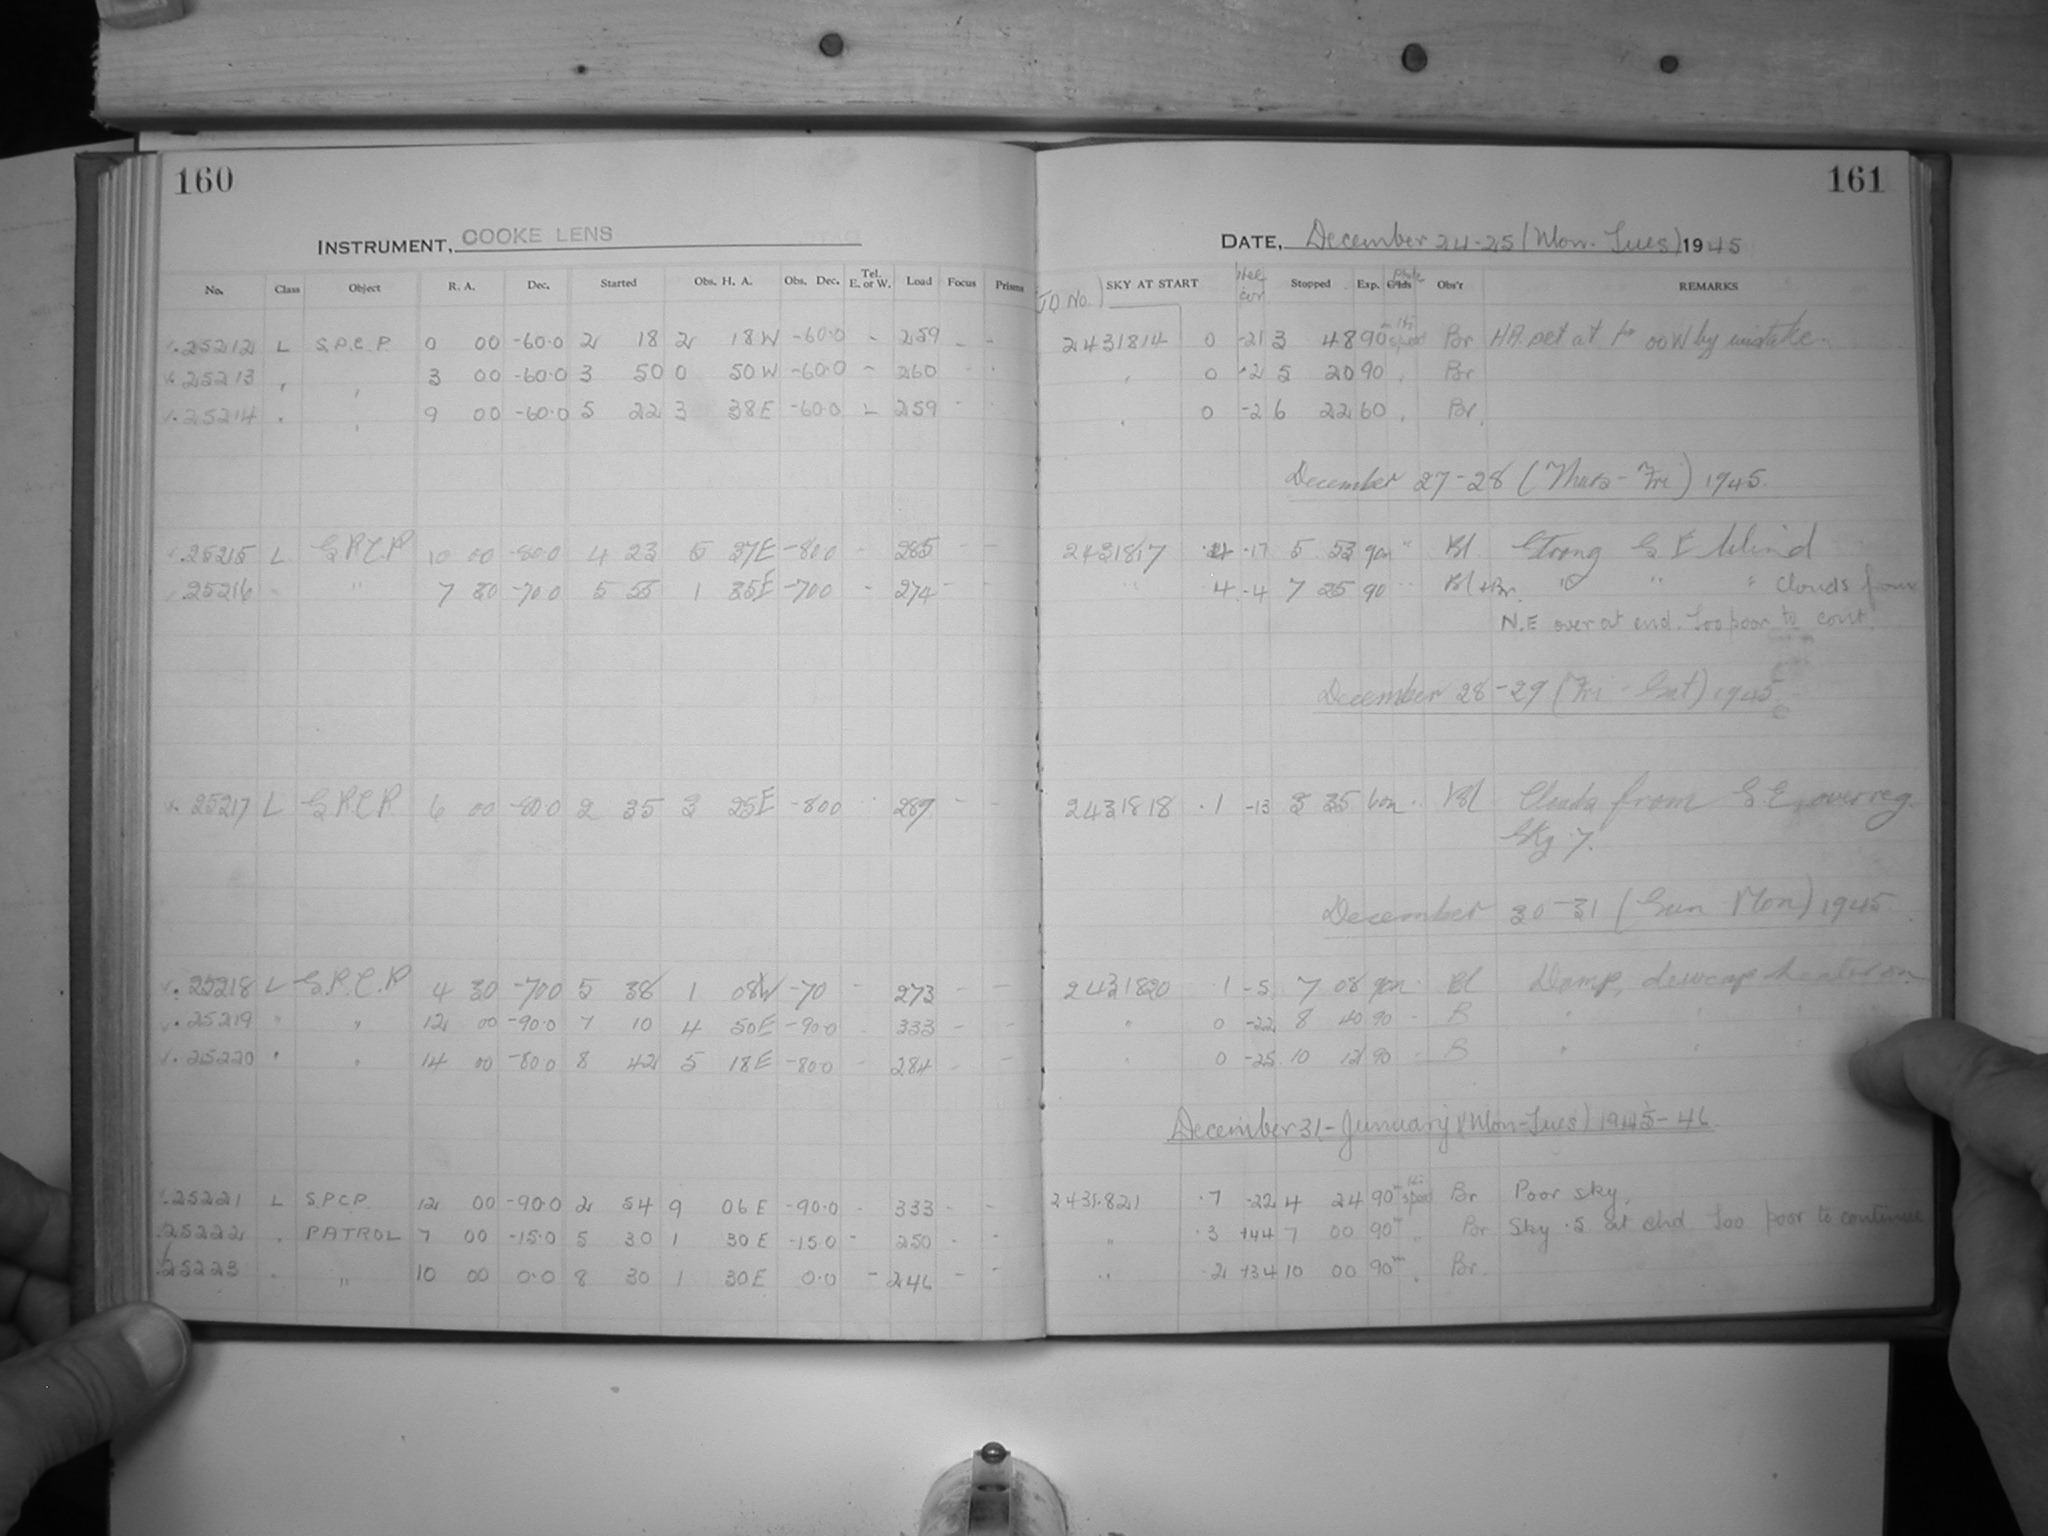 160
INSTRUMENT, COOKE LENS
No. Class Object R. A. Dec. Started Obs. H. A. Obs. Dec. Tel. E. or W. Load Focus Prisms
25212 L S.P.C.P. 0 00 -60.0 2 18 2 18 W -60.0 - 259 - -
25213 " " 3 00 -60.0 3 50 0 50 W -60.0 - 260 - -
25214 " " 9 00 -60.0 5 22 3 38 E -60.0 - 259 - -
25215 L S.P.C.P 10 00 -80.0 4 23 5 37 E -80.0 - 285 - -
25216 " " 7 30 -70.0 5 55 1 35 E -70.0 - 274 - -
25217 L S.P.C.P. 6 00 -80.0 2 35 3 25 E -80.0 289 - -
25218 L S.P.C.P 4 30 -70.0 5 38 1 08 W -70 - 273 - -
25219 " " 12 00 -90.0 7 10 4 50 E -90.0 - 333 - -
25220 " " 14 00 -80.0 8 42 5 18 E -80.0 - 284 - -
25221 L S.P.C.P. 12 00 -90.0 2 54 9 06 E -90.0 - 333 - -
25222 " PATROL 7 00 -15.0 5 30 1 30 E -15.0 - 250 - -
25223 " " 10 00 0.0 8 30 1 30 E 0.0 - 246 - -
161
DATE, December 24-25 (Mon-Tues) 1945
JD No. SKY AT START Hel cor Stopped Exp. Plate Obs'r REMARKS
2431814 0 -21 3 48 90m Hi speed Br HA set at 1h 00 W by mistake.
" 0 -2 5 20 90 " Br
" 0 -2 6 22 60 " Br.
December 27-28 (Thurs-Fri) 1945.
2431817 .4 -17 5 53 90m " Bl Strong S E Wind
" .4 -4 7 25 90 " Bl + Br. " " " Clouds from
N.E over at end. Too poor to cont.
December 28-29 (Fri-Sat) 1945
2431818 .1 -13 3 35 60m " Bl Clouds from S E, over reg.
Sky .7.
December 30-31 (Sun Mon) 1945
2431820 .1 -5 7 08 90m " Bl Damp, dewcap heater on
" 0 -22 8 40 90 " B " " "
" 0 -25 10 12 90 " B " " "
December 31-January 1 (Mon-Tues) 1945-46
2431821 .7 -22 4 24 90m Hi speed Br Poor sky.
" .3 +44 7 00 90m " Br Sky .5 at end Too poor to continue
" .2 +34 10 00 90m " Br.